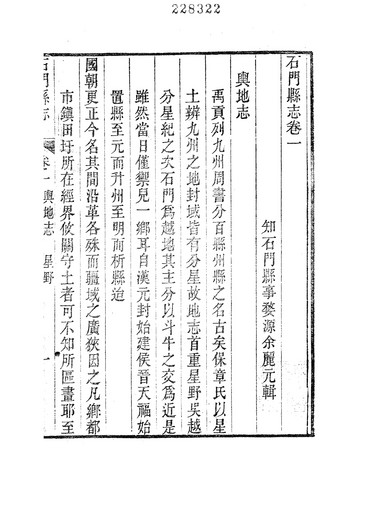 228322
石門縣志卷一
知石門縣事婺源余麗元輯
輿地志
禹貢列九州周書分百縣州縣之名古矣保章氏以星
土辨九州之地封域皆有分星故地志首重星野吳越
分星紀之次石門爲越地其主分以斗牛之交爲近是
雖然當日僅禦兒一鄉耳自漢元封始建侯晉天福始
置縣至元而升州至明而析縣迨
國朝更正今名其間沿革各殊而疆域之廣狹因之凡鄉都
市鎭田圩所在經界攸關守土者可不知所區畫耶至
石門縣志
卷一 輿地志 星野
一